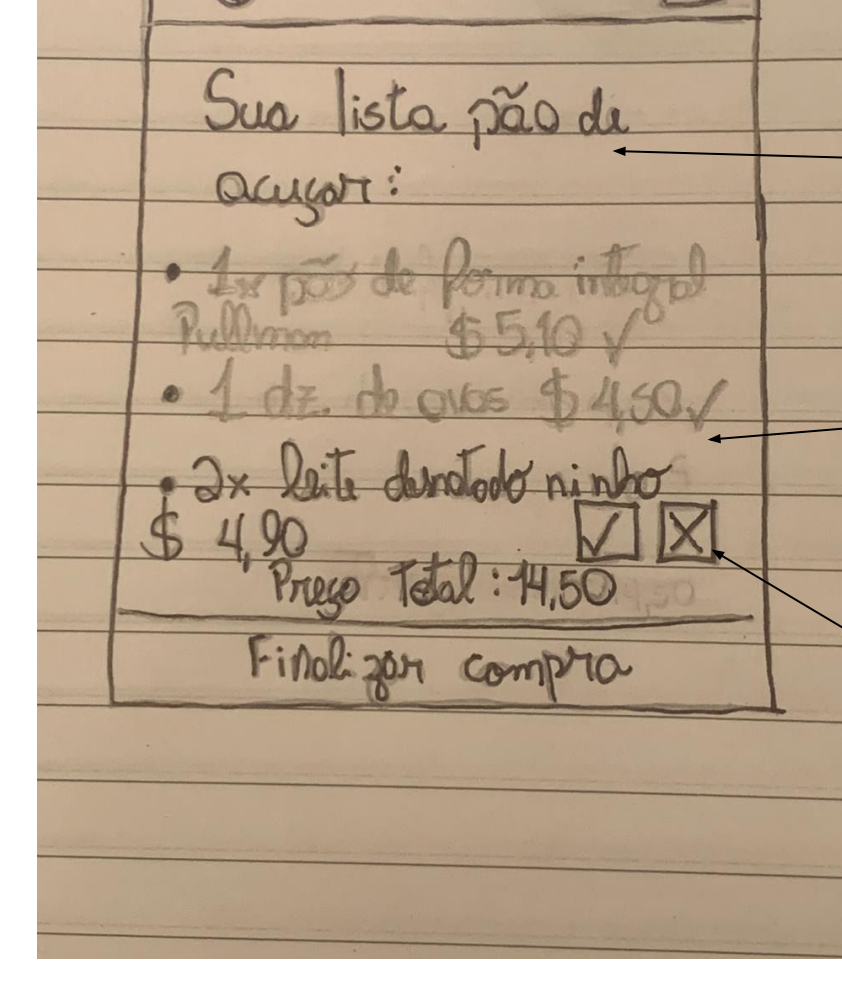 Sua lista pão de
acuçar:
• 1x pão de forma integral
Pullman $5,10 ✓
• 1 dz. de ovos $4,50 ✓
• 2x leite desnatado ninho
$ 4,90 ✓ X
Preço Total: 14,50
Finalizar compra